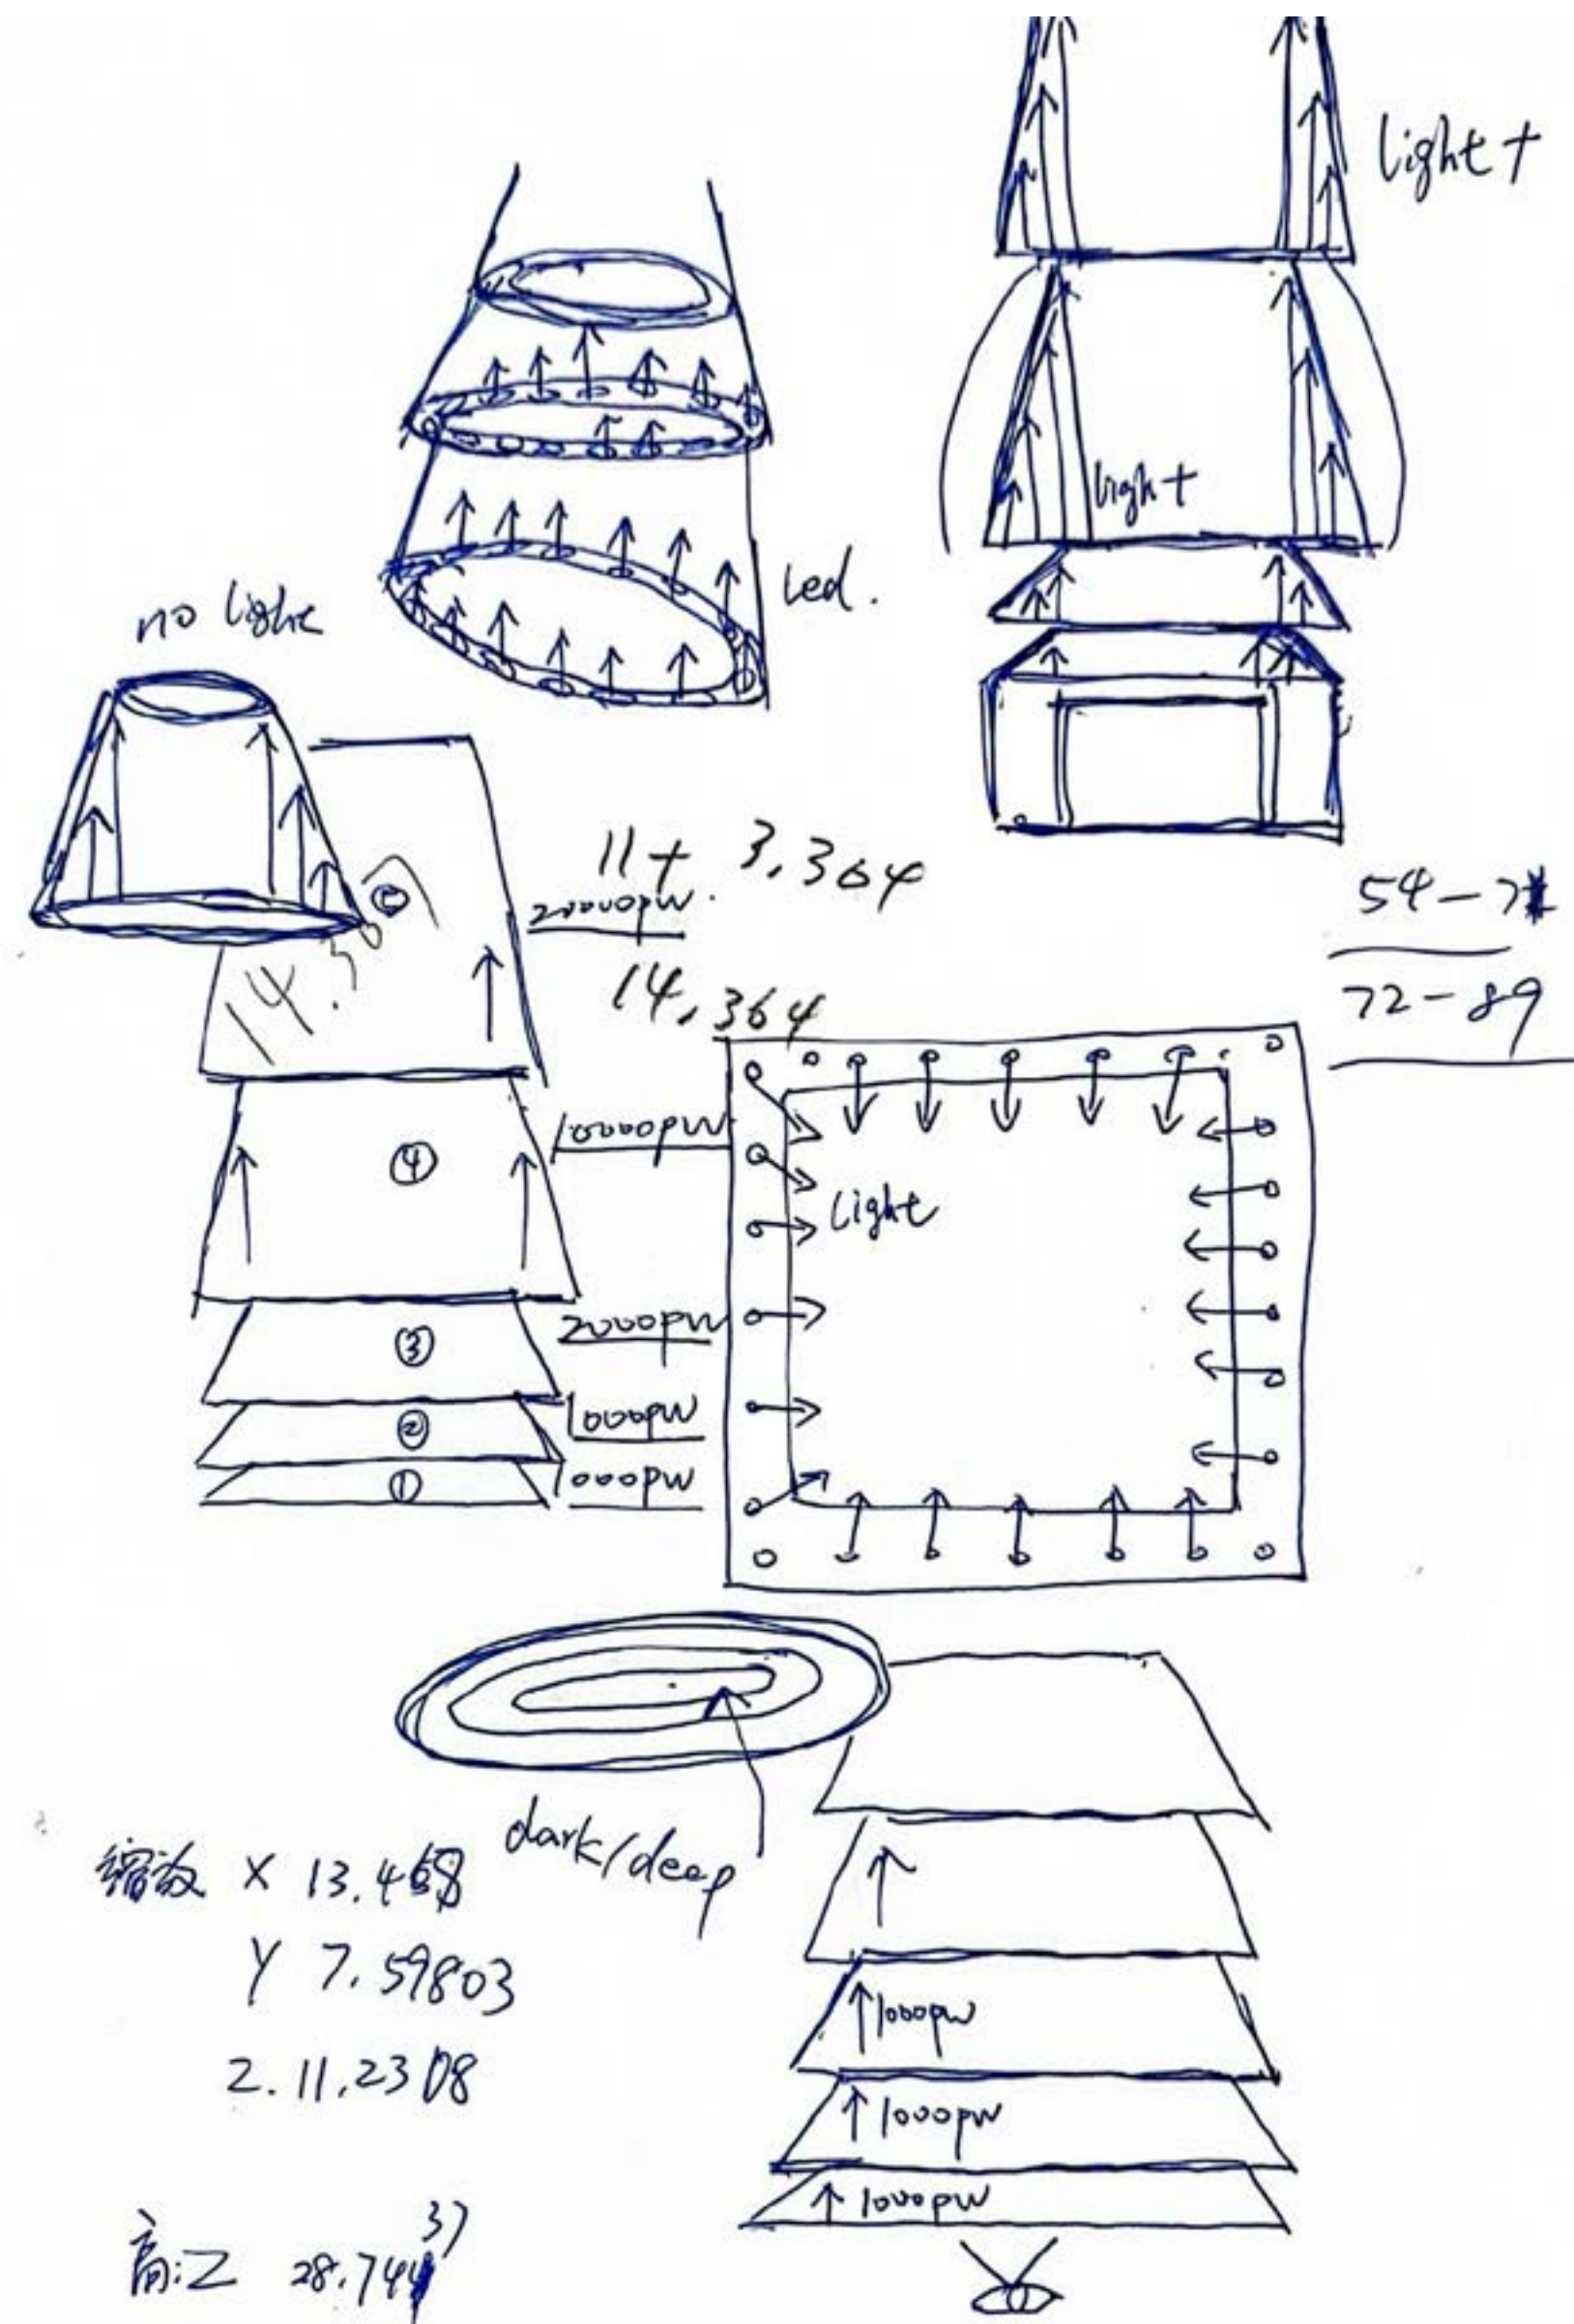 light +
light
Led.
no light
11 + 3,364
20000pw.
14,364
54-7
72-89
⑤
14.3
④
10000pw
light
③
2000pw
②
1000pw
①
1000pw
dark/deep
缩放 X 13.468
Y 7.59803
Z. 11.2308
1000pw
1000pw
1000pw
高:Z 28.744
37